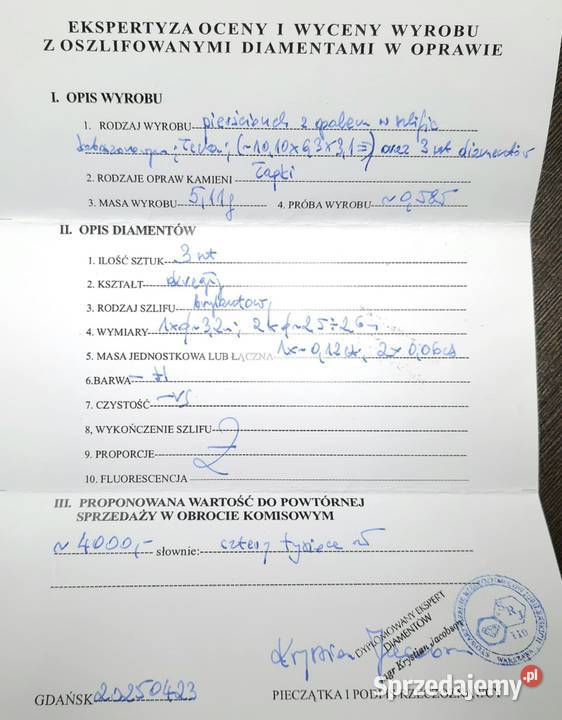 EKSPERTYZA OCENY I WYCENY WYROBU
Z OSZLIFOWANYMI DIAMENTAMI W OPRAWIE
I. OPIS WYROBU
1. RODZAJ WYROBU pierścionek z opalem w szlifie
kaboszonowym; (~10,10x6,3x3,1 oraz 3 szt diamentów
2. RODZAJE OPRAW KAMIENI łapki
3. MASA WYROBU 5,11g 4. PRÓBA WYROBU ~0,585
II. OPIS DIAMENTÓW
1. ILOŚĆ SZTUK 3 szt
2. KSZTAŁT okrągły
3. RODZAJ SZLIFU brylantowy
4. WYMIARY 1xφ~3,2m; 2xφ~2,5÷2,6m
5. MASA JEDNOSTKOWA LUB ŁĄCZNA 1x~0,12ct, 2x~0,06ct
6.BARWA ~H
7. CZYSTOŚĆ ~VS
8, WYKOŃCZENIE SZLIFU
9. PROPORCJE
10. FLUORESCENCJA
III. PROPONOWANA WARTOŚĆ DO POWTÓRNEJ
SPRZEDAŻY W OBROCIE KOMISOWYM
~4000,- słownie: cztery tysiące zł
DYPLOMOWANY EKSPERT
DIAMENTÓW
mgr Krystian Jacobson
Krystian Jacobson
SRJ
110
WARSZAWA
GDAŃSK 20250423 PIECZĄTKA I PODPIS RZECZOZNAWCY
Sprzedajemy.pl